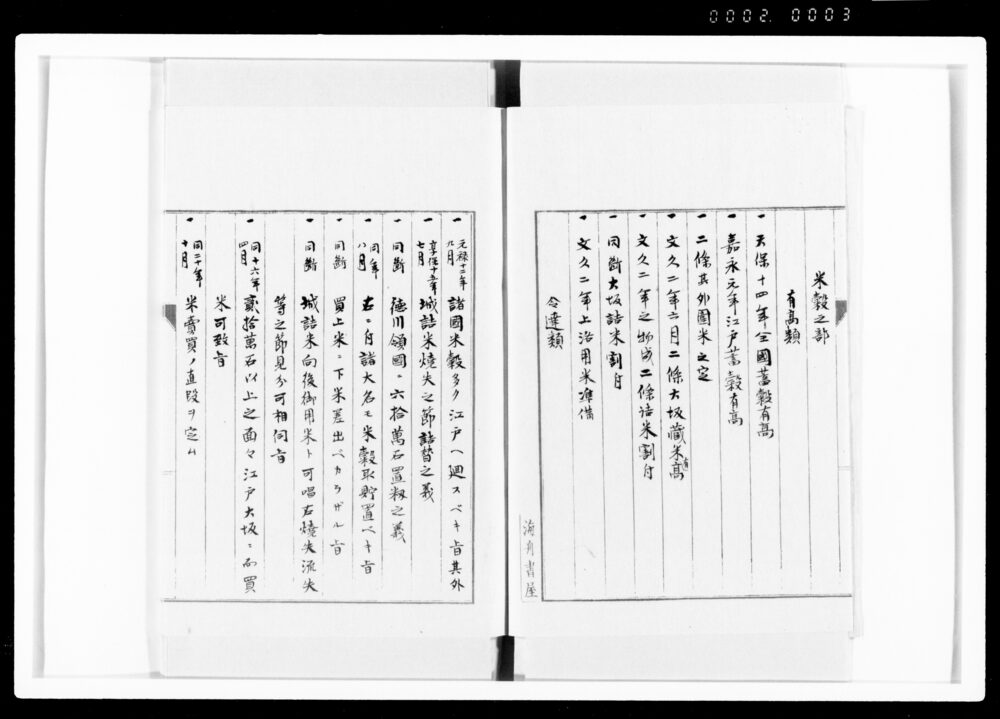 0002. 0003
米穀之部
有高類
一 天保十四年全國蓄穀有高
一 嘉永元年江戸蓄穀有高
一 二條其外圍米之定
一 文久二年六月二條大坂藏米有高
一 文久二年之物成二條詰米割付
一 同斷大坂詰米割付
一 文久二年上洛用米準備
令達類
海舟書屋
一 元禄十二年九月 諸國米穀多ク江戸ヘ廻スベキ旨其外
一 享保十五年七月 城詰米燒失之節詰替之義
一 同斷 徳川領國ニ六拾萬石置籾之義
一 同年八月 右ニ付諸大名モ米穀取貯置ベキ旨
一 同斷 買上米ニ下米差出ベカラザル旨
一 同斷 城詰米向後御用米ト可唱右燒失流失
等之節見分可相伺旨
一 同十六年四月 貳拾萬石以上之面々江戸大坂ニ而買
米可致旨
一 同二十年十月 米賣買ノ直段ヲ定ム